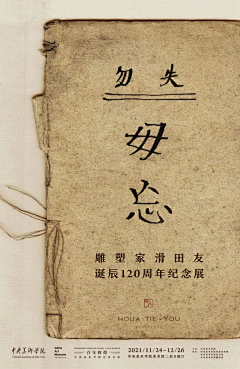 勿失
毋忘
雕塑家滑田友
诞辰120周年纪念展
HOUA TIE-YOU
中央美术学院
2021/11/24-12/26